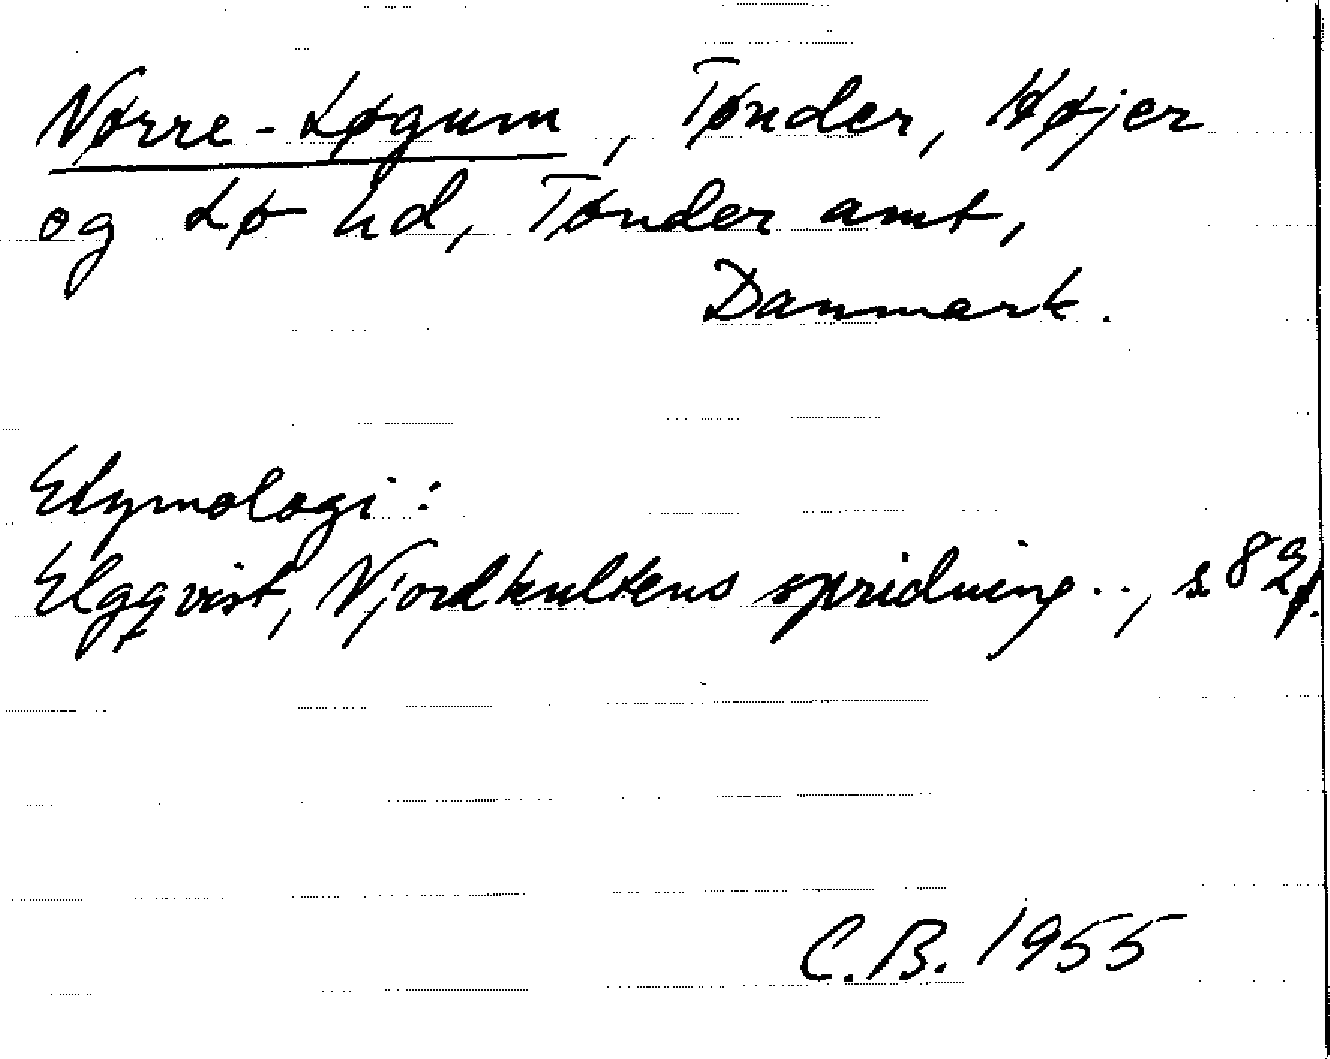 Nørre-Løgum, Tønder, Højer
og Lø hd, Tønder amt,
Danmark.
Etymologi:
Elgqvist, Njordkultens spridning.., s 82f.
C.B. 1955